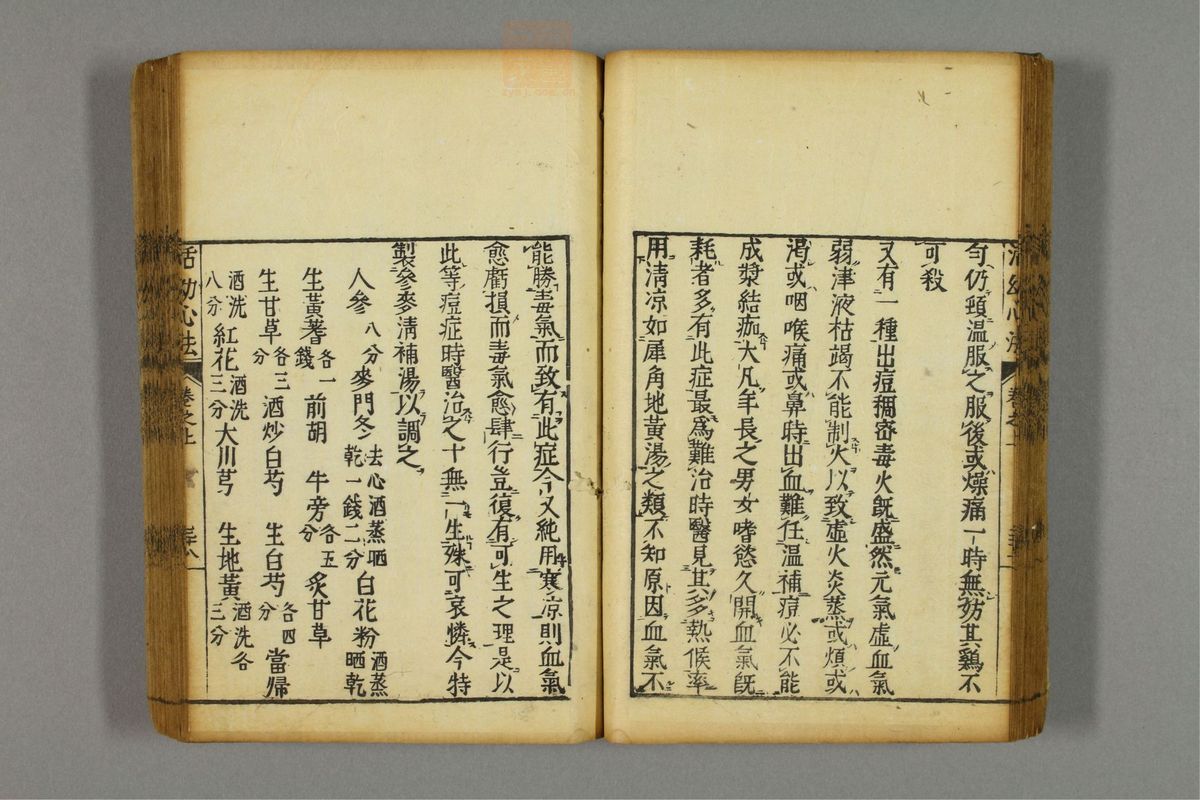 勻仍頓溫服之服後或燥痛一時無妨其鷄不
可殺
又有一種出痘稠密毒火旣盛然元氣虛血氣
弱津液枯竭不能制火以致虛火炎蒸或煩或
渴或咽喉痛或鼻時出血難任溫補痘必不能
成漿結痂大凡年長之男女嗜慾久開血氣旣
耗者多有此症最爲難治時醫見其多熱候率
用淸凉如犀角地黃湯之類不知原因血氣不
能勝毒氣而致有此症今又純用寒凉則血氣
愈虧損而毒氣愈肆行豈復有可生之理是以
此等痘症時醫治之十無一生殊可哀憐今特
製參麥淸補湯以調之
人參八分 麥門冬去心酒蒸晒乾一錢二分 白花粉酒蒸晒乾
生黃蓍各一錢 前胡 牛旁各五分 炙甘草
生甘草各三分 酒炒白芍 生白芍各四分 當帰
酒洗八分 紅花酒洗三分 大川芎 生地黃酒洗各三分
活幼心法 卷之上